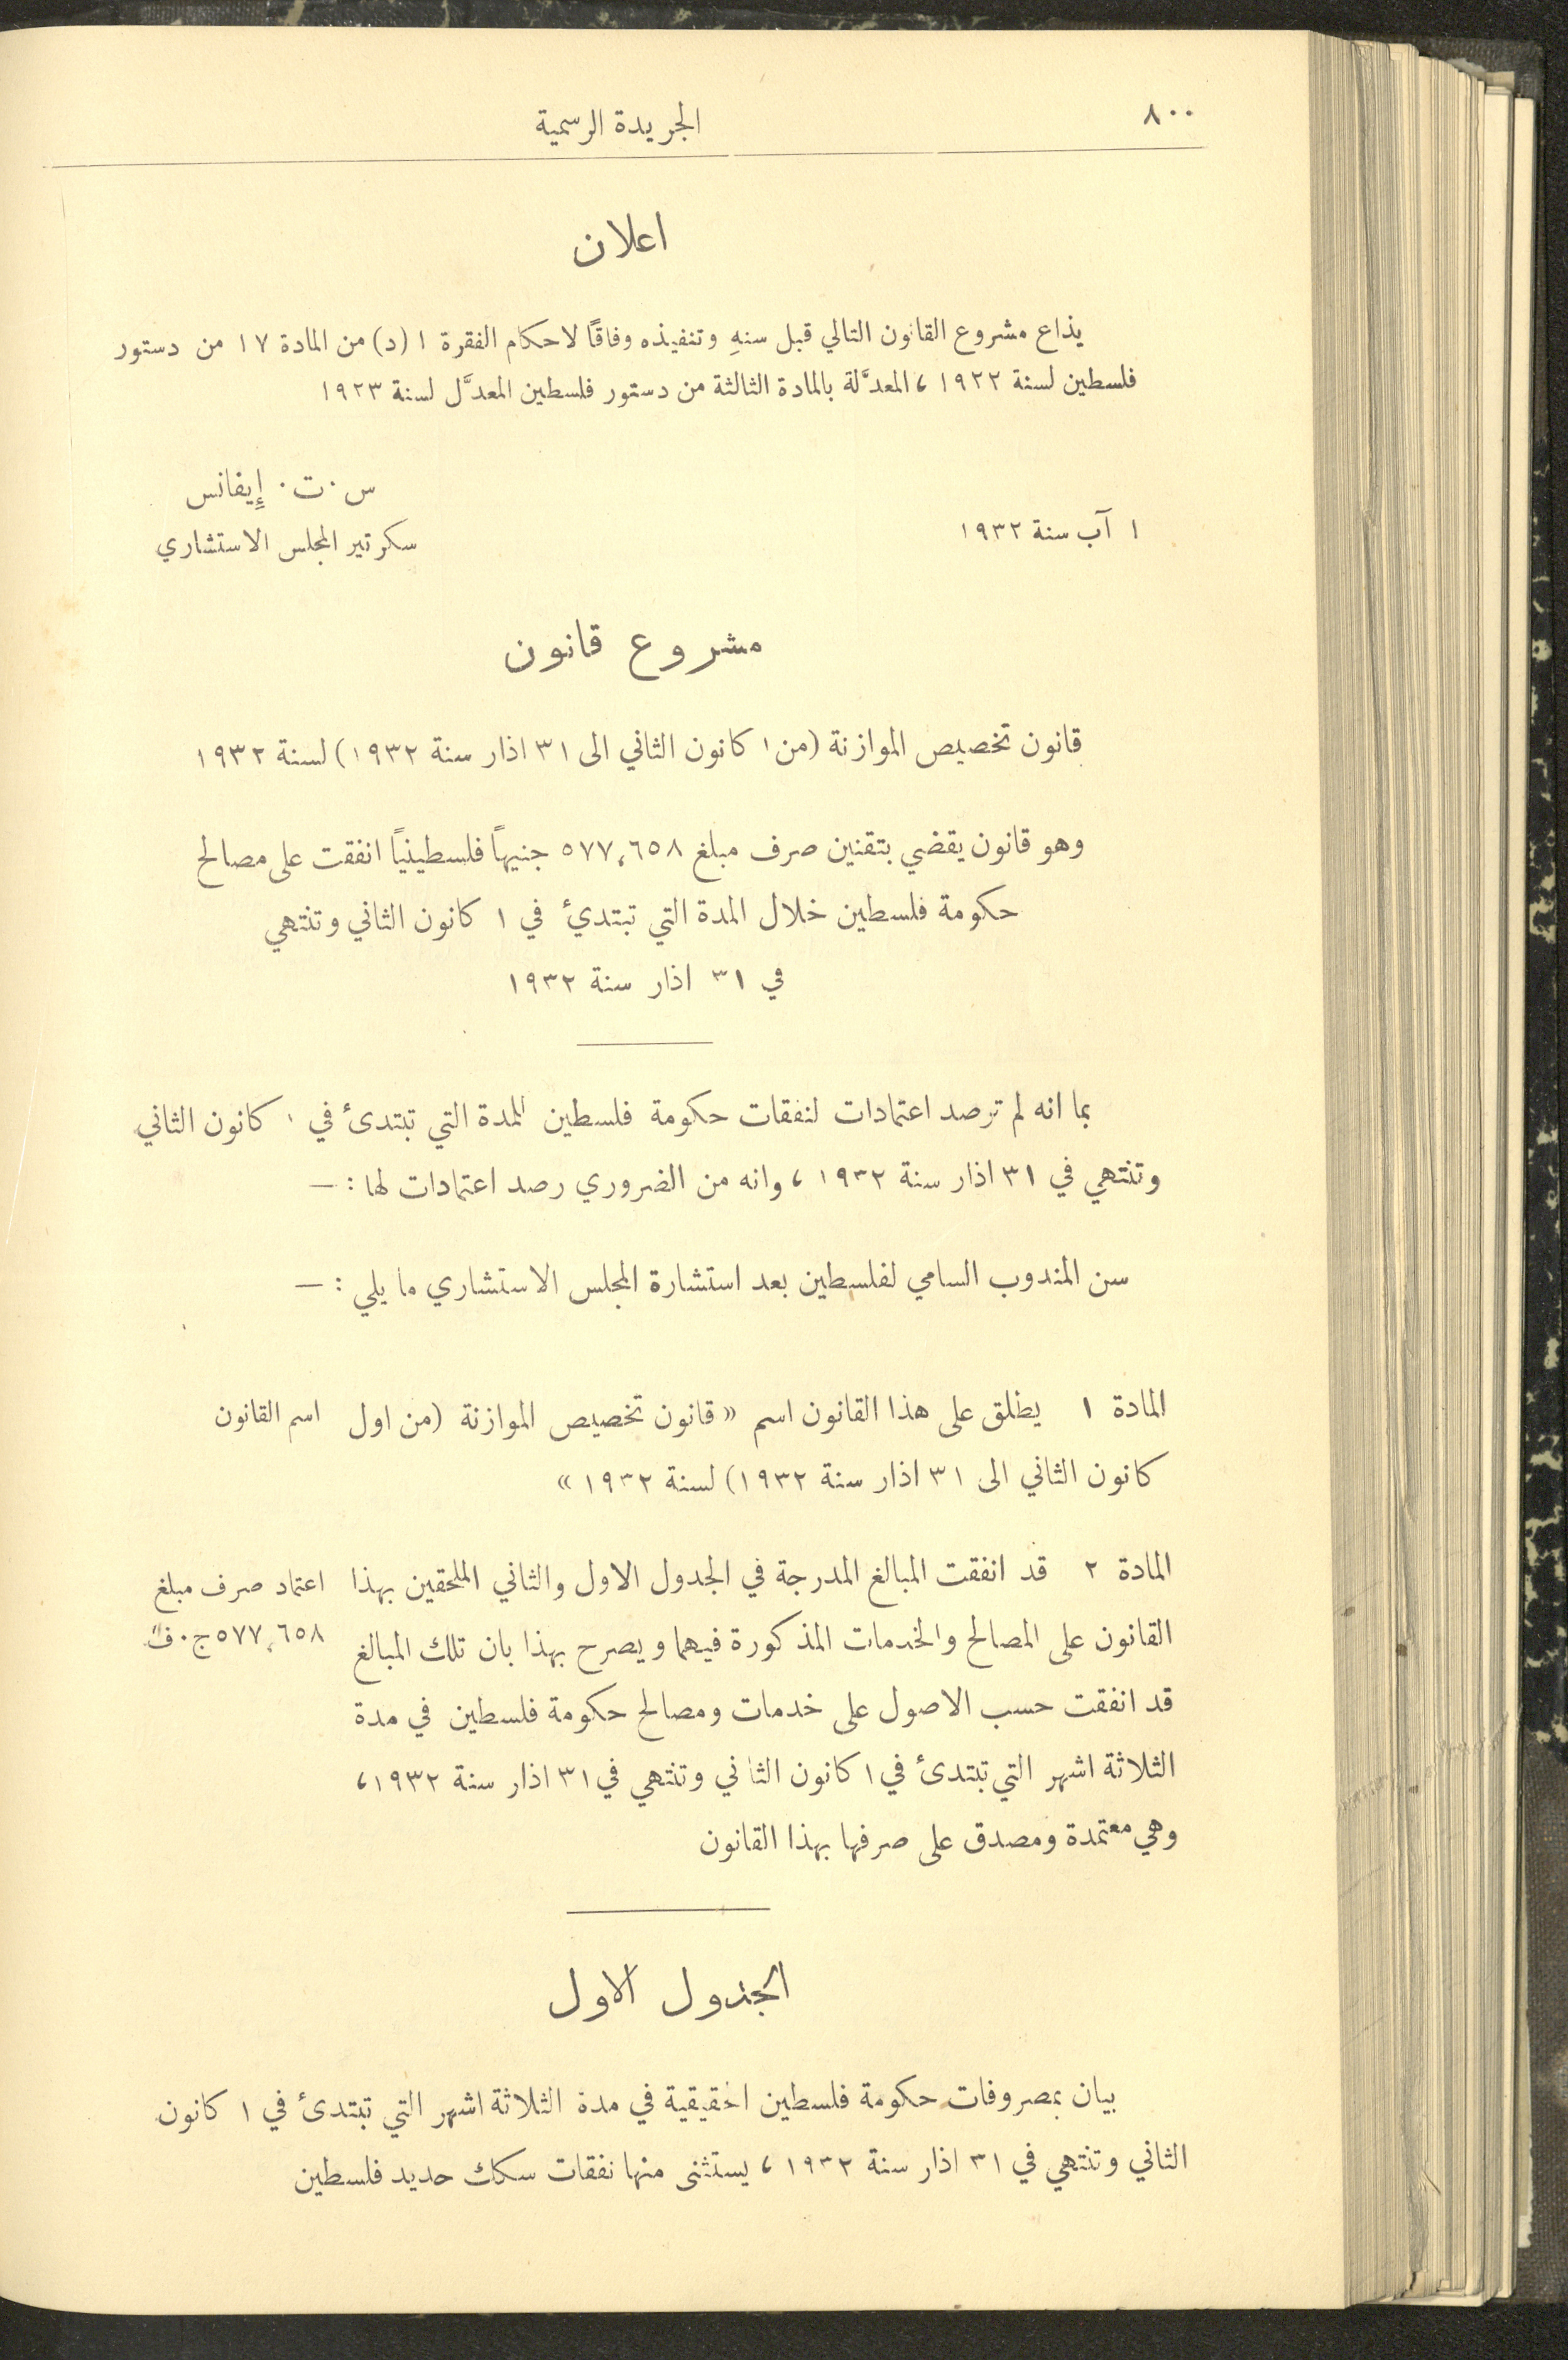 ٨٠٠
الجريدة الرسمية
اعلان
يذاع مشروع القانون التالي قبل سنهِ وتنفيذه وفاقًا لاحكام الفقرة ١ (د) من المادة ١٧ من دستور
فلسطين لسنة ١٩٢٢ ، المعدَّلة بالمادة الثالثة من دستور فلسطين المعدَّل لسنة ١٩٢٣
س . ت . إيفانس
١ آب سنة ١٩٣٢
سكرتير المجلس الاستشاري
مشروع قانون
قانون تخصيص الموازنة (من ١ كانون الثاني الى ٣١ اذار سنة ١٩٣٢) لسنة ١٩٣٢
وهو قانون يقضي بتقنين صرف مبلغ ٥٧٧،٦٥٨ جنيهاً فلسطينيًا انفقت على مصالح
حكومة فلسطين خلال المدة التي تبتدئ في ١ كانون الثاني وتنتهي
في ٣١ اذار سنة ١٩٣٢
بما انه لم ترصد اعتمادات لنفقات حكومة فلسطين للمدة التي تبتدئ في ١ كانون الثاني
وتنتهي في ٣١ اذار سنة ١٩٣٢ ، وانه من الضروري رصد اعتمادات لها : —
سن المندوب السامي لفلسطين بعد استشارة المجلس الاستشاري ما يلي : —
المادة ١ يطلق على هذا القانون اسم « قانون تخصيص الموازنة (من اول
كانون الثاني الى ٣١ اذار سنة ١٩٣٢) لسنة ١٩٣٢ »
اسم القانون
المادة ٢ قد انفقت المبالغ المدرجة في الجدول الاول والثاني الملحقين بهذا
القانون على المصالح والخدمات المذكورة فيهما ويصرح بهذا بان تلك المبالغ
قد انفقت حسب الاصول على خدمات ومصالح حكومة فلسطين في مدة
الثلاثة اشهر التي تبتدئ في ١ كانون الثاني وتنتهي في ٣١ اذار سنة ١٩٣٢ ،
وهي معتمدة ومصدق على صرفها بهذا القانون
اعتماد صرف مبلغ
٥٧٧،٦٥٨ ج . ف
الجدول الاول
بيان بمصروفات حكومة فلسطين الحقيقية في مدة الثلاثة اشهر التي تبتدئ في ١ كانون
الثاني وتنتهي في ٣١ اذار سنة ١٩٣٢ ، يستثنى منها نفقات سكك حديد فلسطين